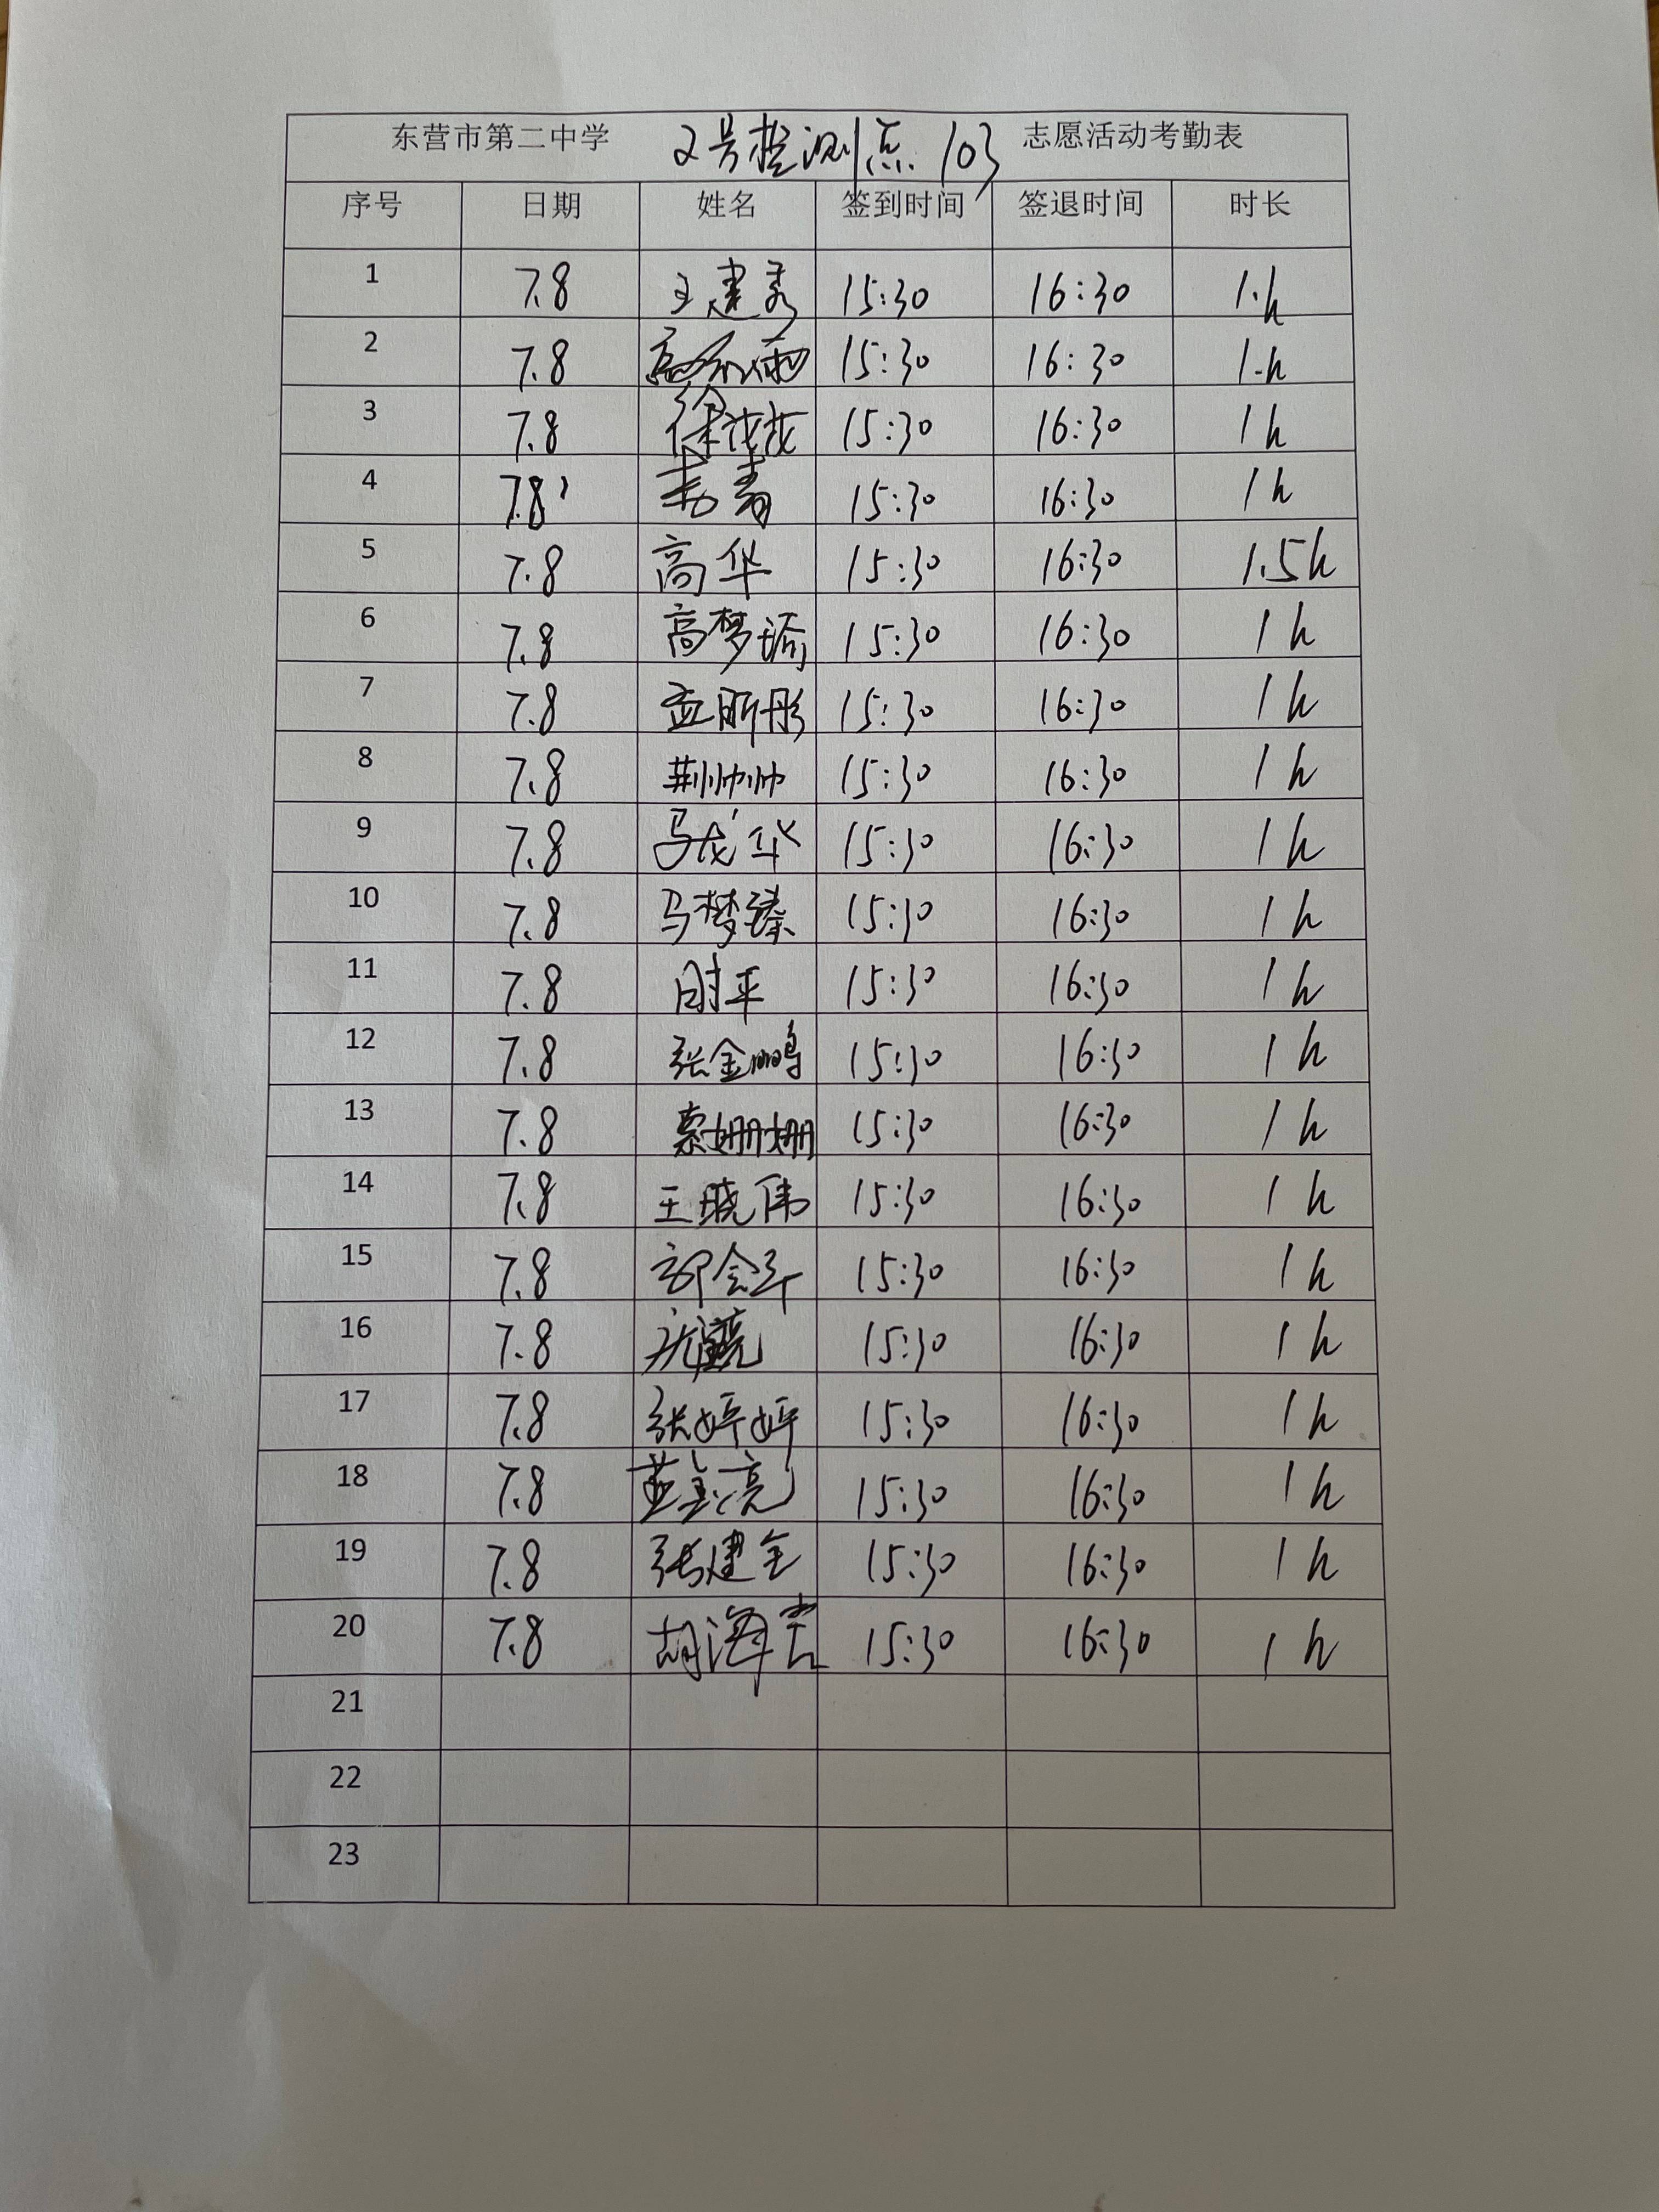 东营市第二中学 2号检测点 103 志愿活动考勤表
序号 日期 姓名 签到时间 签退时间 时长
1 7.8 王建秀 15:30 16:30 1.h
2 7.8 15:30 16:30 1.h
3 7.8 徐茂茂 15:30 16:30 1h
4 7.8 15:30 16:30 1h
5 7.8 高华 15:30 16:30 1.5h
6 7.8 高梦瑜 15:30 16:30 1h
7 7.8 孟昕彤 15:30 16:30 1h
8 7.8 荆帅帅 15:30 16:30 1h
9 7.8 马龙华 15:30 16:30 1h
10 7.8 马梦臻 15:30 16:30 1h
11 7.8 时平 15:30 16:30 1h
12 7.8 张金鹏 15:30 16:30 1h
13 7.8 綦姗姗 15:30 16:30 1h
14 7.8 王晓伟 15:30 16:30 1h
15 7.8 15:30 16:30 1h
16 7.8 15:30 16:30 1h
17 7.8 张婷婷 15:30 16:30 1h
18 7.8 15:30 16:30 1h
19 7.8 张建全 15:30 16:30 1h
20 7.8 15:30 16:30 1h
21
22
23